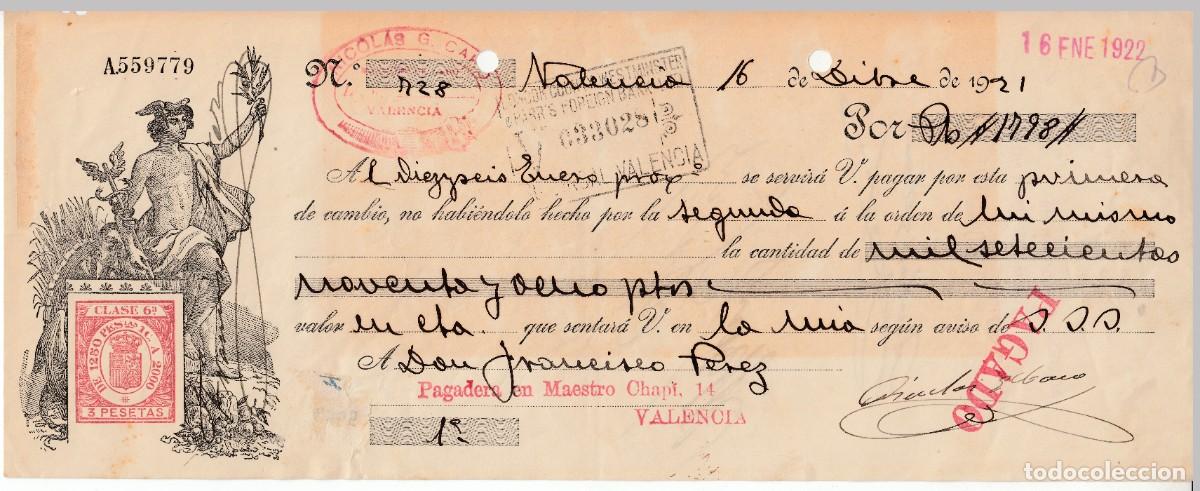 A559779
NICOLÁS G. CARO
VALENCIA
16 ENE 1922
N.º 728 Valencia 16 de Dibre de 1921
WESTMINSTER
& PARR'S FOREIGN BANK
033028
VALENCIA
Por Pts #1798#
Al Diezyseis Enero proxº se servirá V. pagar por esta primera
de cambio, no habiéndolo hecho por la segunda á la orden de Mi mismo
la cantidad de mil setecientas
noventa y ocho ptas
valor en cta que sentará V. en la mia según aviso de S. S. S.
A Don Francisco Perez
Pagadera en Maestro Chapí, 14
VALENCIA
1ª
PAGADO
CLASE 6ª
DE 1250 PESETAS 1 C. A 2000
3 PESETAS
todocoleccion